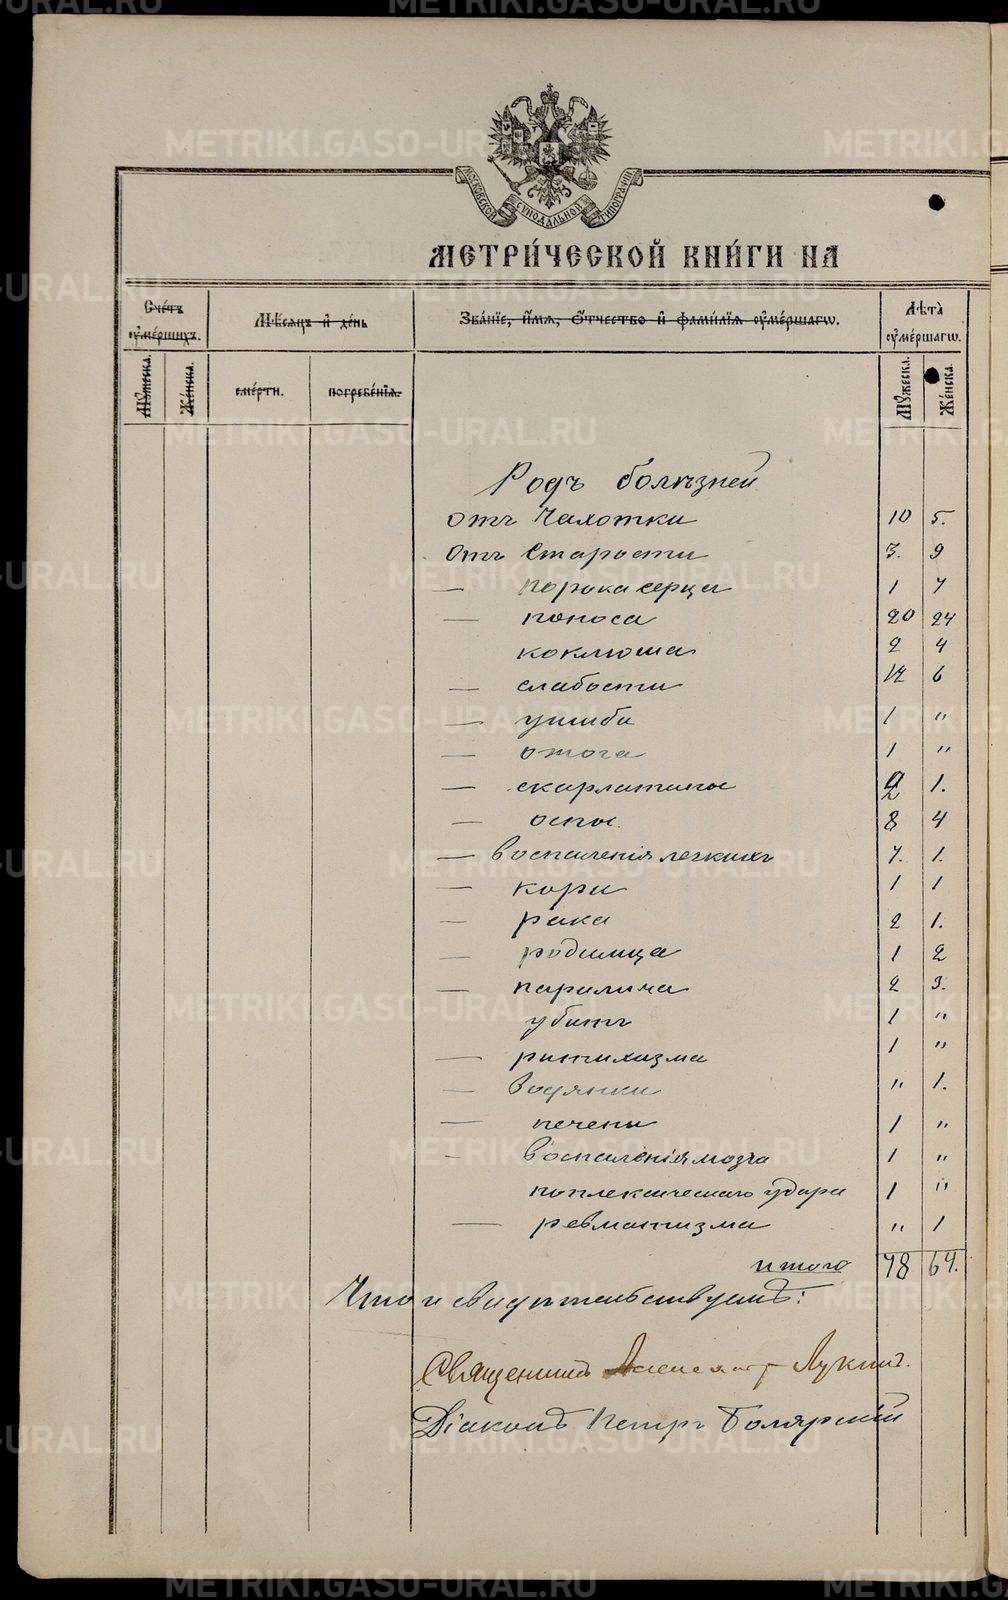 МОСКОВСКОЙ СѴНОДАЛЬНОЙ ТИПОГРАФІИ
МЕТРИ́ЧЕСКОЙ КНИ́ГИ НА
Сче́тъ ᲂу҆ме́ршихъ.
Мѣ́сяцъ и҆ де́нь
Зва́нїе, и҆́мѧ, Ѻ҆́тчество и҆ фами́лїѧ ᲂу҆ме́ршагѡ.
Лѣта̀ ᲂу҆ме́ршагѡ.
Мꙋ́жеска.
Же́нска.
сме́рти.
погребе́нїѧ.
Мꙋ́жеска.
Же́нска.
Родъ болѣзней
отъ Чахотки 10 5.
отъ Старости 3. 9
— порока серца 1 7
— поноса 20 24
коклюша 2 4
— слабости 12 6
— ушиба 1 "
— ожога 1 "
— скарлатины 2 1.
— оспы. 8 4
— воспаленія легкихъ 7. 1.
— кори 1 1
— рака 2 1.
— родимца 1 2
— паралича 2 3.
убитъ 1 "
— 1 "
— водянки " 1.
— печени 1 "
— воспаленія мозга 1 "
поплексическаго удара 1 "
— ревматизма " 1
итого 78 67.
Что и свидѣтельствуемъ:
Священникъ Александръ Лукинъ.
Діаконъ Петръ Болярскій
METRIKI.GASO-URAL.RU